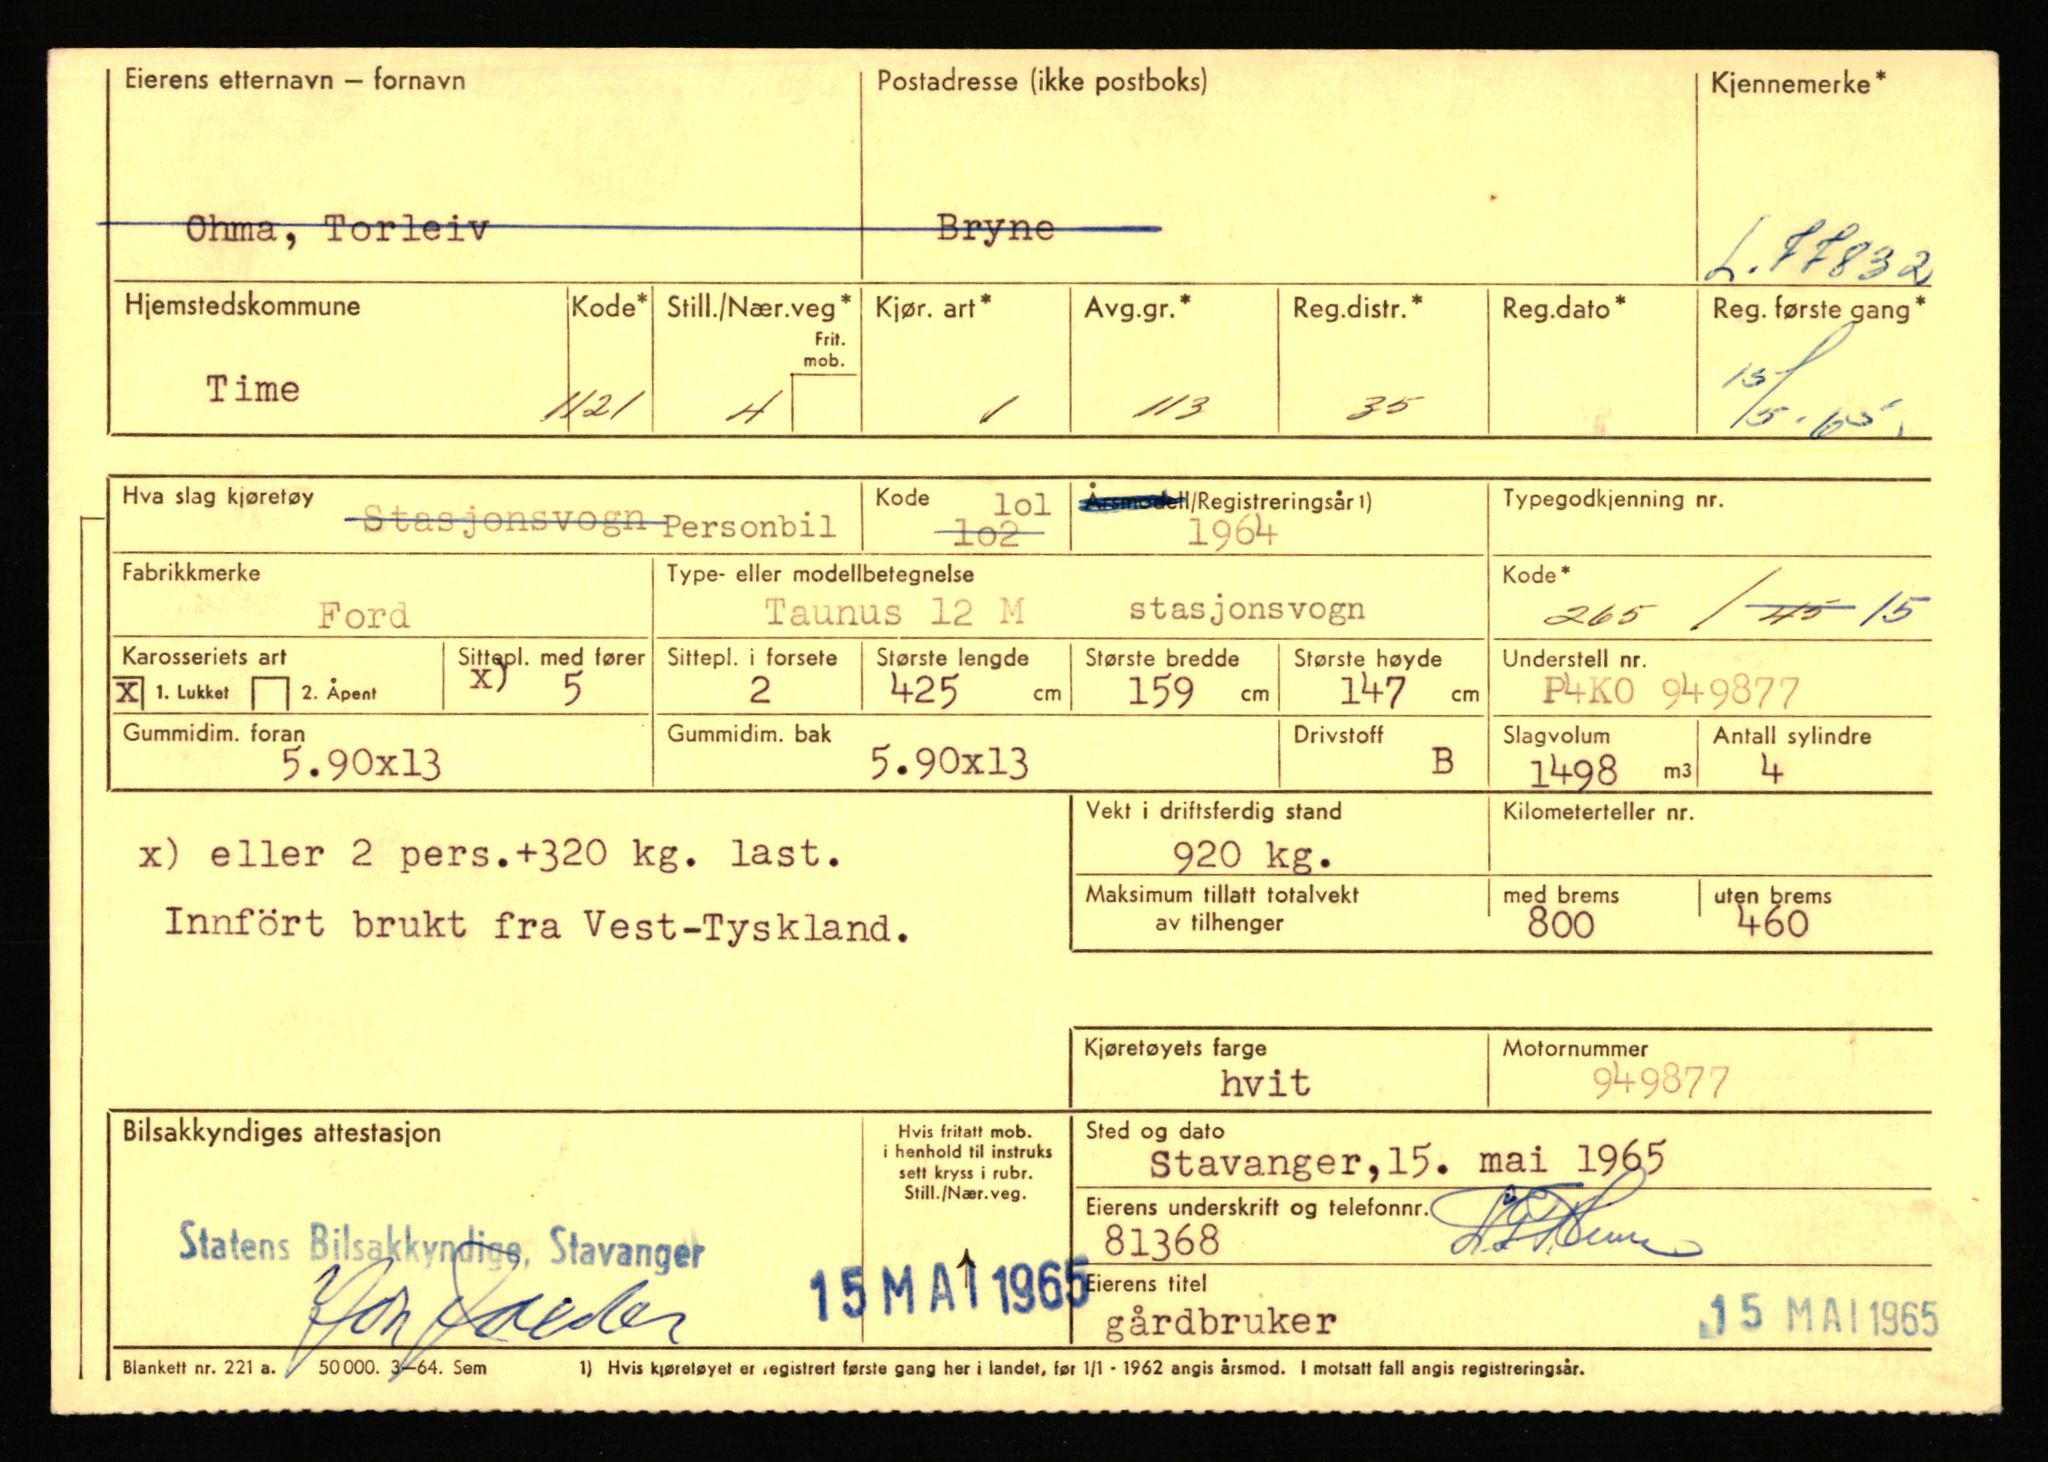 Eierens etternavn – fornavn Postadresse (ikke postboks) Kjennemerke*
Ohma, Torleiv Bryne L.77832
Hjemstedskommune Kode* Still./Nær.veg* Kjør. art* Avg.gr.* Reg.distr.* Reg.dato* Reg. første gang*
Frit.
mob.
Time 1121 4 1 113 35 15/5.65.
Hva slag kjøretøy Kode Årsmodell/Registreringsår 1) Typegodkjenning nr.
Stasjonsvogn Personbil lo2 lol 1964
Fabrikkmerke Type- eller modellbetegnelse Kode*
Ford Taunus 12 M stasjonsvogn 265 / 45 15
Karosseriets art Sittepl. med fører Sittepl. i forsete Største lengde Største bredde Største høyde Understell nr.
X 1. Lukket 2. Åpent x) 5 2 425 cm 159 cm 147 cm P4KO 949877
Gummidim. foran Gummidim. bak Drivstoff Slagvolum Antall sylindre
5.90x13 5.90x13 B 1498 m3 4
Vekt i driftsferdig stand Kilometerteller nr.
x) eller 2 pers.+320 kg. last. 920 kg.
Maksimum tillatt totalvekt med brems uten brems
av tilhenger 800 460
Innfört brukt fra Vest-Tyskland.
Kjøretøyets farge Motornummer
hvit 949877
Bilsakkyndiges attestasjon Hvis fritatt mob. Sted og dato
i henhold til instruks
sett kryss i rubr.
Still./Nær.veg.
Stavanger,15. mai 1965
Eierens underskrift og telefonnr.
81368
Statens Bilsakkyndige, Stavanger
15 MAI 1965
Eierens titel
gårdbruker 15 MAI 1965
Blankett nr. 221 a. 50 000. 3–64. Sem 1) Hvis kjøretøyet er registrert første gang her i landet, før 1/1 - 1962 angis årsmod. I motsatt fall angis registreringsår.